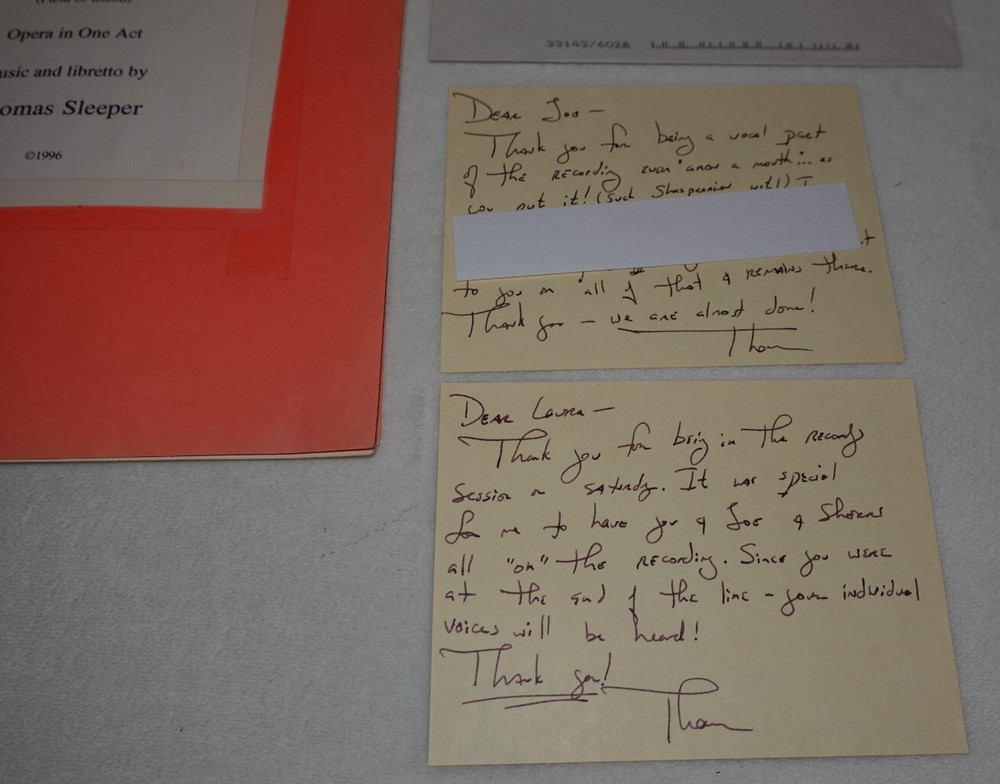 Opera in One Act
usic and libretto by
omas Sleeper
©1996
33143/6026
Dear Joe —
Thank you for being a vocal part
of the recording even "anow a mouth"... as
you put it! (such Shasperian wit!) I
to you on all of that & remains there.
Thank you — we are almost done!
Thom
Dear Laura —
Thank you for being in the recordg
session on Saturday. It was special
for me to have you & Joe &
all "on" the recording. Since you were
at the end of the line — your individual
voices will be heard!
Thank you!
Thom